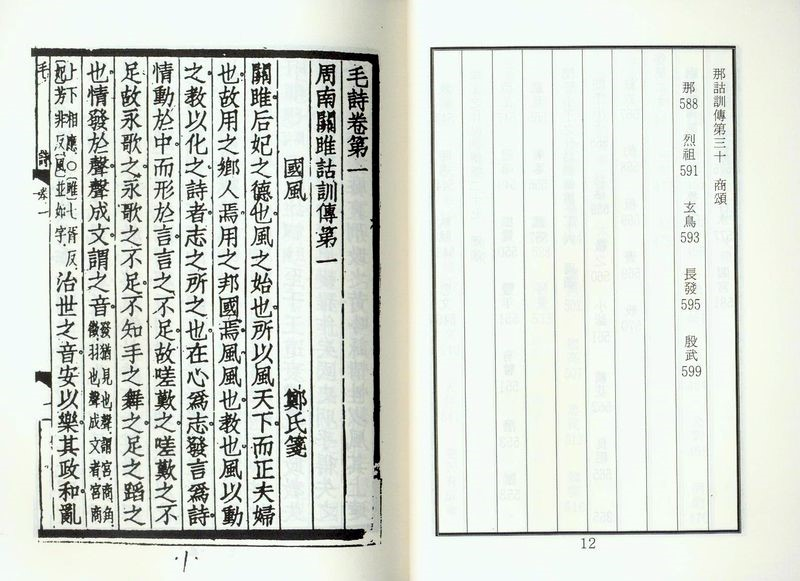 那詁訓傳第三十　商頌
那 588　烈祖 591　玄鳥 593　長發 595　殷武 599
12
毛詩卷第一
周南關雎詁訓傳第一
國風　鄭氏箋
關雎后妃之德也風之始也所以風天下而正夫婦
也故用之鄉人焉用之邦國焉風風也教也風以動
之教以化之詩者志之所之也在心爲志發言爲詩
情動於中而形於言言之不足故嗟歎之嗟歎之不
足故永歌之永歌之不足不知手之舞之足之蹈之
也情發於聲聲成文謂之音發猶見也聲謂宮商角徵羽也聲成文者宮商
上下相應○雎七胥反妃芳非反風並如字治世之音安以樂其政和亂
毛詩卷一
1